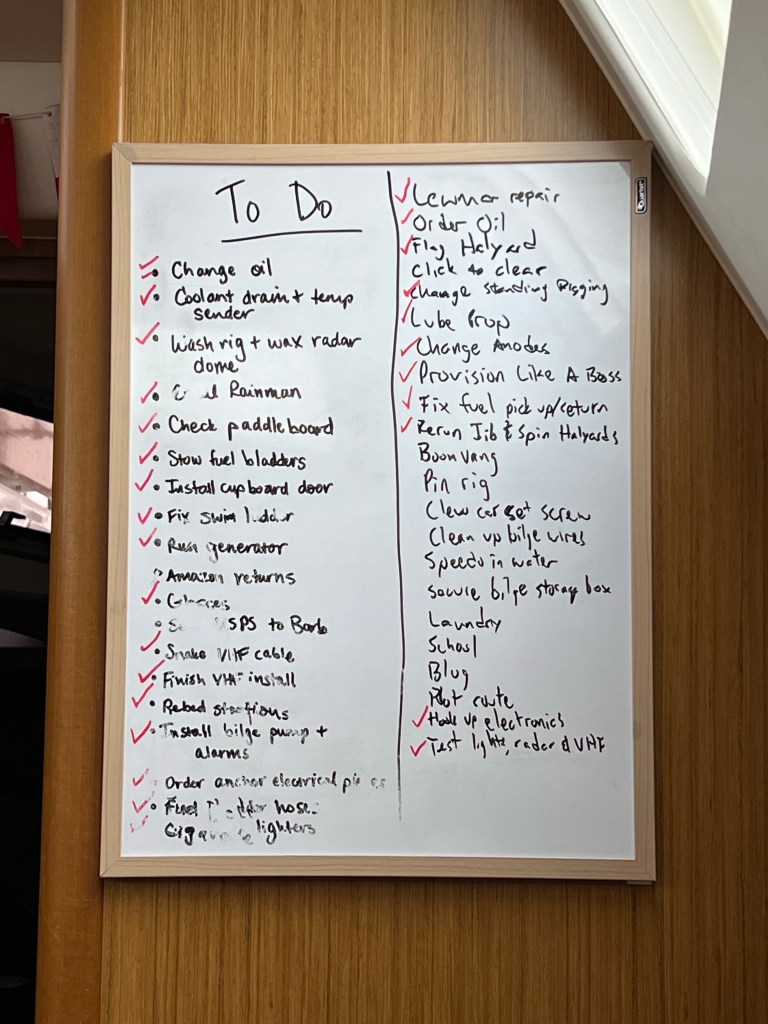 To Do
Change oil
Coolant drain + temp
sender
Wash rig + wax radar
dome
Rainman
Check paddleboard
Stow fuel bladders
Install cupboard door
Fix swim
Run generator
Amazon returns
to Barb
Snake VHF cable
Finish VHF install
Rebed
Install bilge pump +
alarms
Order anchor electrical
Fuel hose
lighters
Lewmar repair
Order Oil
Flag Halyard
Click to clear
Change Standing Rigging
Lube Prop
Change Anodes
Provision Like A Boss
Fix fuel pick up/return
Rerun Jib & Spin Halyards
Boom vang
Pin rig
Clew car set screw
Clean up bilge wires
Speedo in water
secure bilge storage box
Laundry
School
Blog
Plot route
Hook up electronics
Test lights, radar & VHF